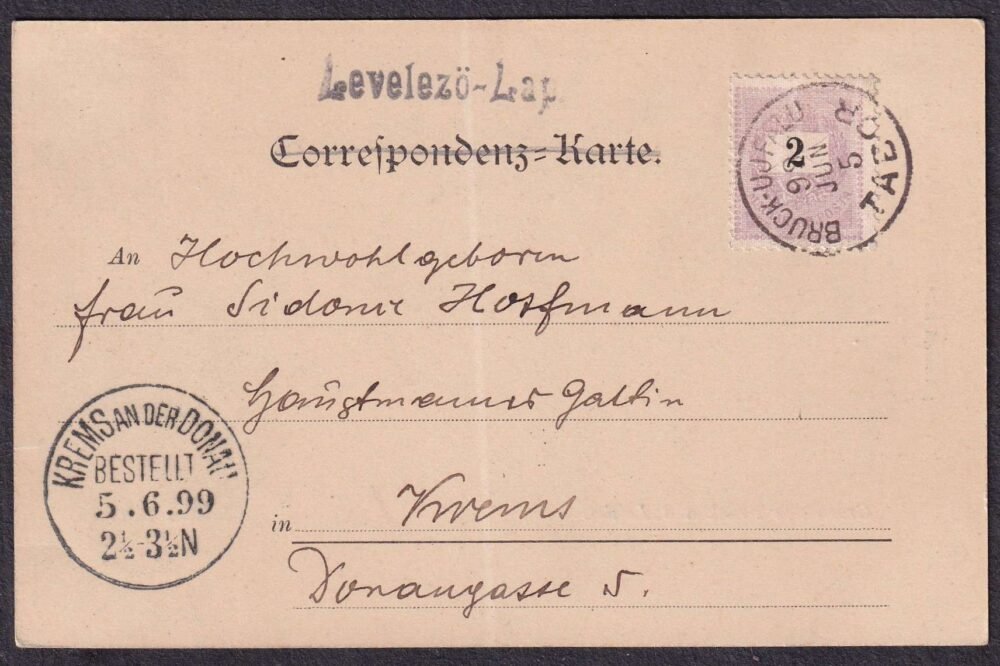 Levelezö-Lap.
Correspondenz-Karte.
2
BRUCK-UJFALU
TABOR
99
JUN
5
An Hochwohlgeboren
Frau Sidonie Hoffmann
Hauptmanns Gattin
KREMS AN DER DONAU
BESTELLT
5.6.99
2½-3½N
in Krems
Donaugasse 5.